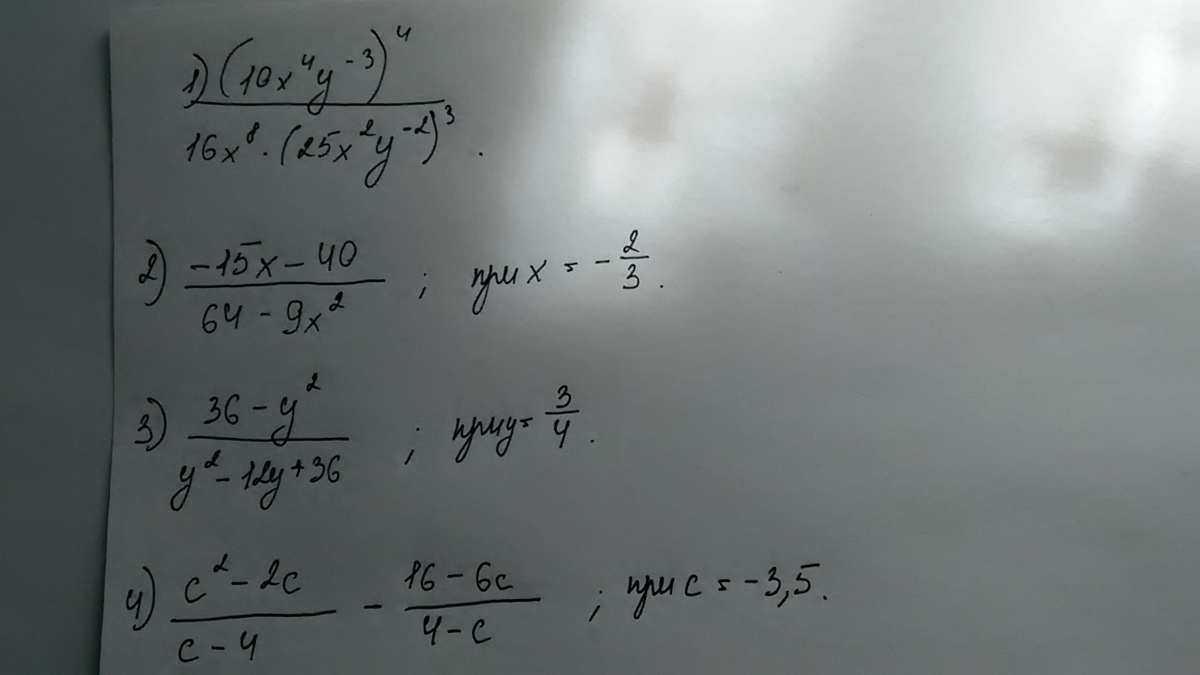 1) (10x⁴y⁻³)⁴
16x⁸ · (25x²y⁻²)³ .
2) -15x - 40 / 64 - 9x² ; при x = - 2/3 .
3) 36 - y² / y² - 12y + 36 ; при y = 3/4 .
4) c² - 2c / c - 4 - 16 - 6c / 4 - c ; при c = -3,5.